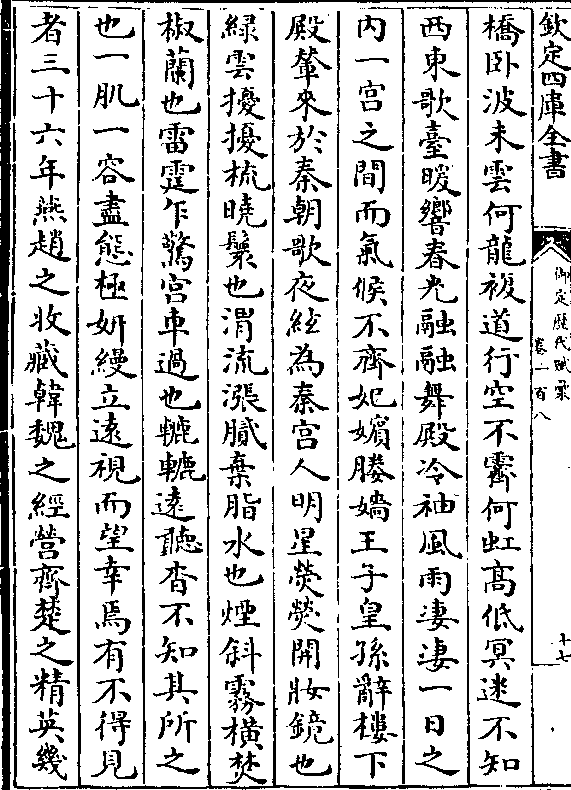 欽定四庫全書
御定歷代賦彙
卷一百八
十七
橋卧波未雲何龍複道行空不霽何虹髙低冥迷不知
西東歌臺暖響春光融融舞殿冷袖風雨淒淒一日之
内一宫之間而氣候不齊妃嬪媵嬙王子皇孫辭樓下
殿輦來於秦朝歌夜絃為秦宫人明星熒熒開妝鏡也
緑雲擾擾梳曉鬟也渭流漲膩棄脂水也煙斜霧橫焚
椒蘭也雷霆乍驚宫車過也轆轆逺聽杳不知其所之
也一肌一容盡態極妍縵立逺視而望幸焉有不得見
者三十六年燕趙之收藏韓魏之經營齊楚之精英幾